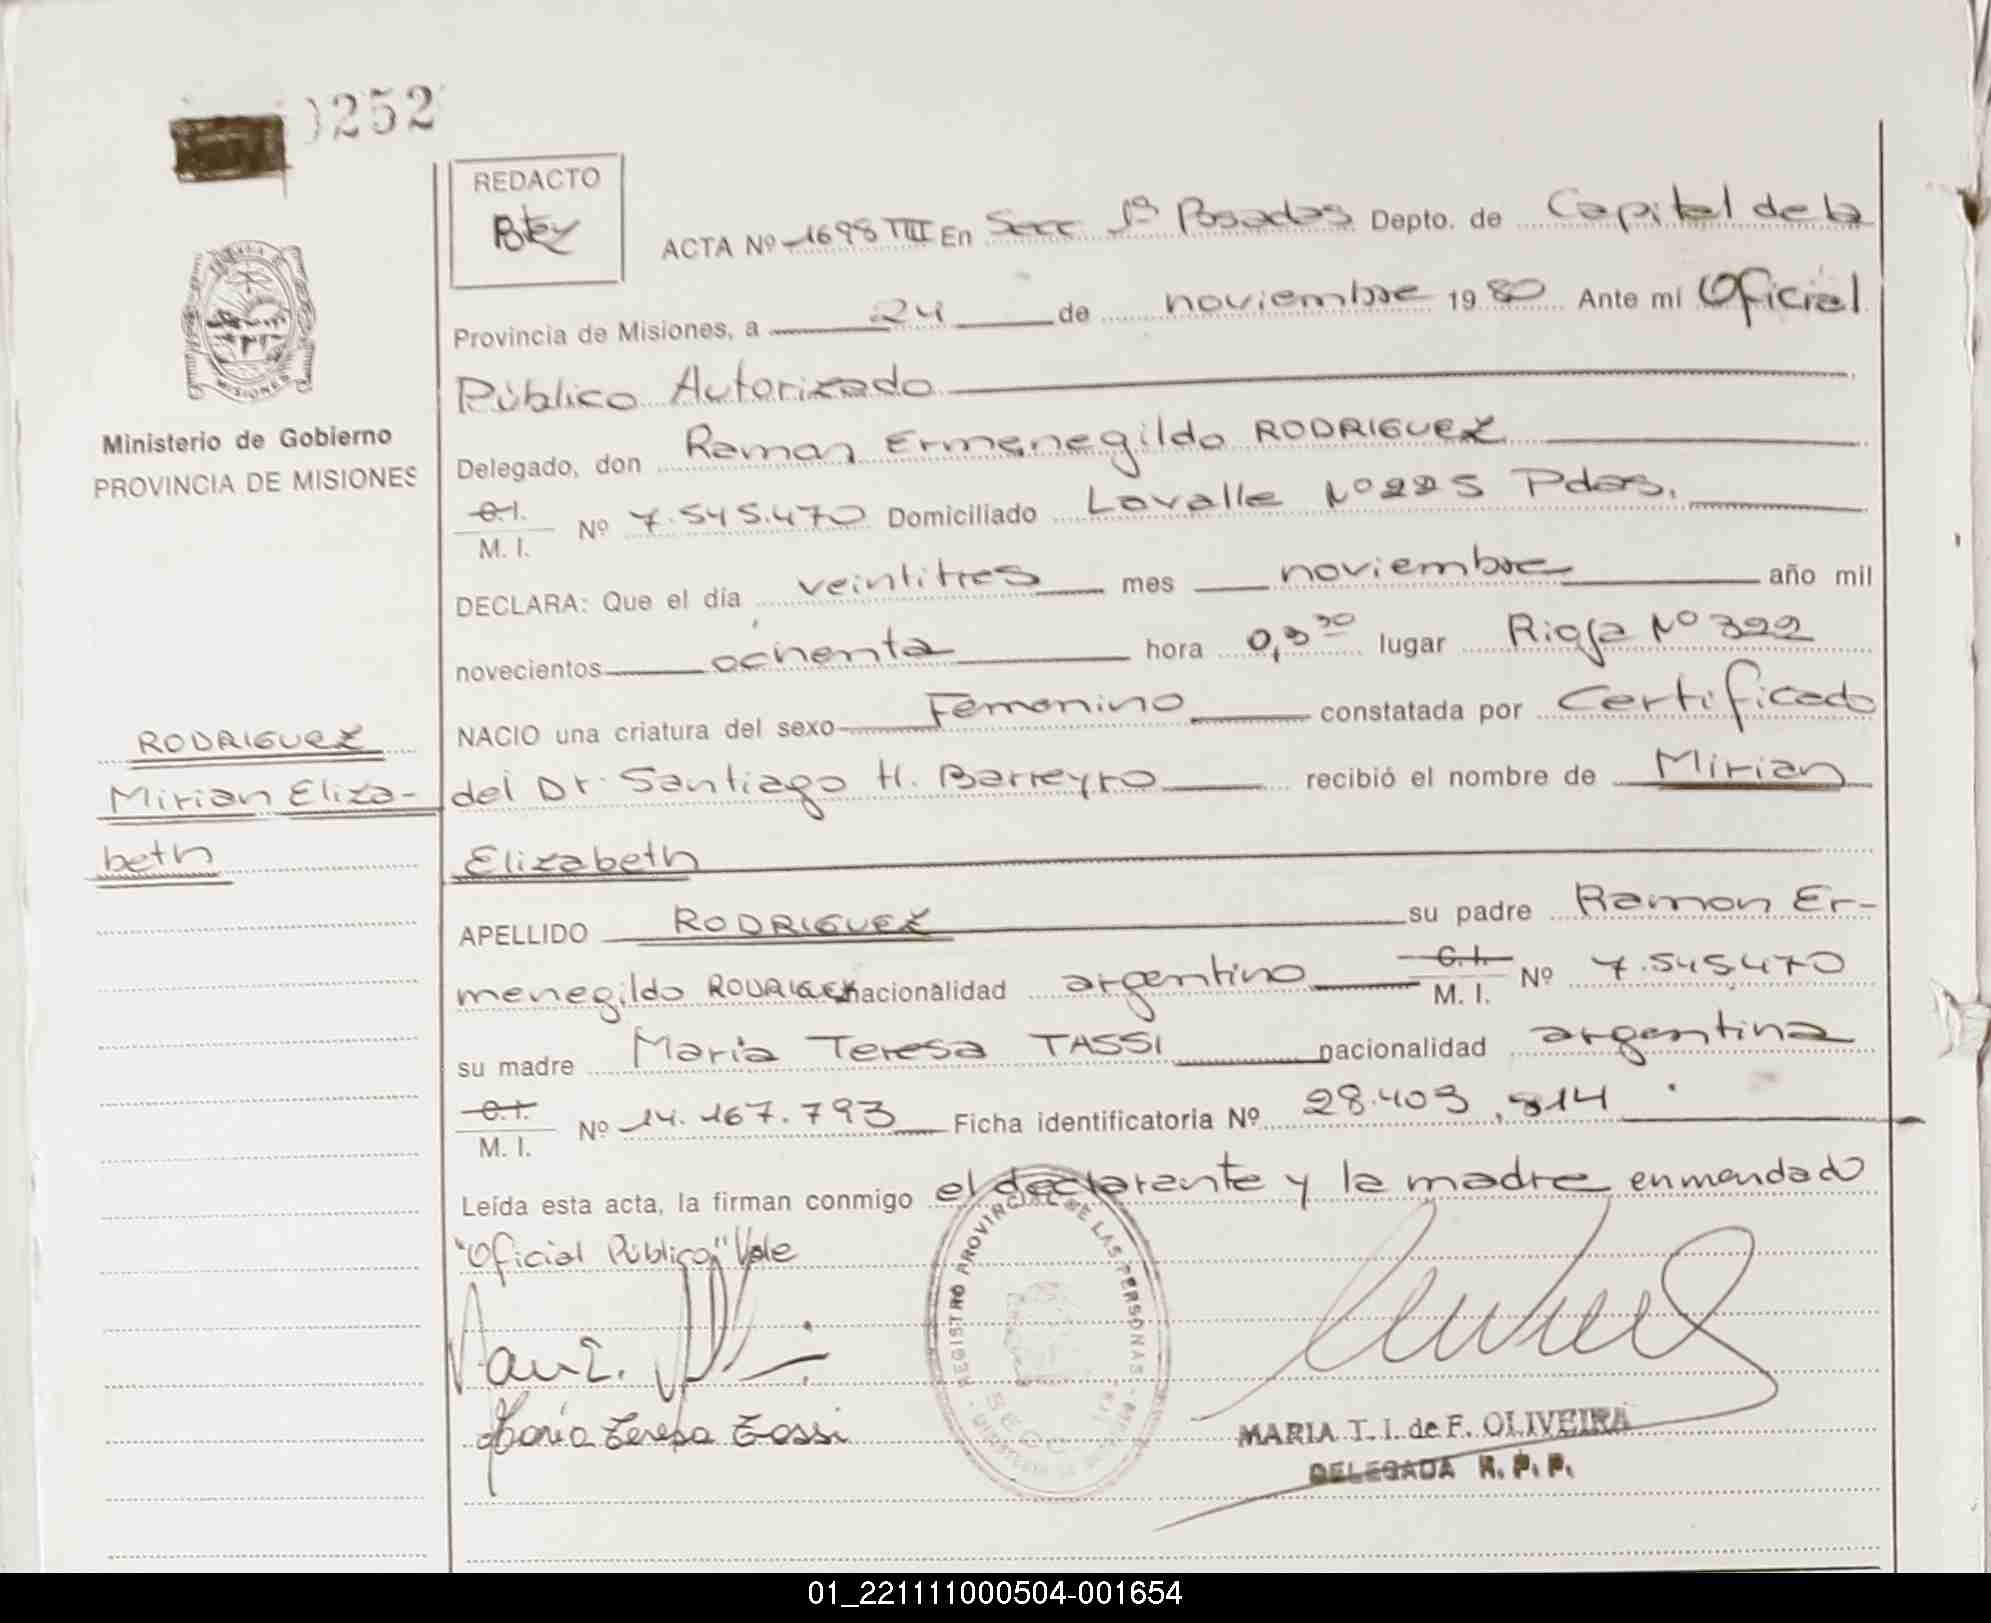 0252
REDACTO
ACTA Nº 1698 TIII En Secc 1ª Posadas Depto. de Capital de la
Provincia de Misiones, a 24 de noviembre 1980 Ante mí Oficial
Público Autorizado
Ministerio de Gobierno
PROVINCIA DE MISIONES
Delegado, don Ramon Ermenegildo RODRIGUEZ
C.I. M. I. Nº 7.545.470 Domiciliado Lavalle Nº 225 Pdas.
DECLARA: Que el día veintitres mes noviembre año mil
novecientos ochenta hora 0,3 30 lugar Rioja Nº 322
NACIO una criatura del sexo Femenino constatada por Certificado
del Dr. Santiago H. Barreyro recibió el nombre de Mirian
Elizabeth
RODRIGUEZ
Mirian Eliza-
beth
APELLIDO RODRIGUEZ su padre Ramon Er-
menegildo RODRIGUEZ nacionalidad argentino C.I. M. I. Nº 7.545.470
su madre Maria Teresa TASSI nacionalidad argentina
C.I. M. I. Nº 14.167.793 Ficha identificatoria Nº 28.403.814
Leída esta acta, la firman conmigo el declarante y la madre enmendado
"Oficial Público" Vale
REGISTRO PROVINCIAL DE LAS PERSONAS
SECC. 1ra
Maria Teresa Tassi
MARIA T. I. de F. OLIVEIRA
DELEGADA R. P. P.
01_221111000504-001654